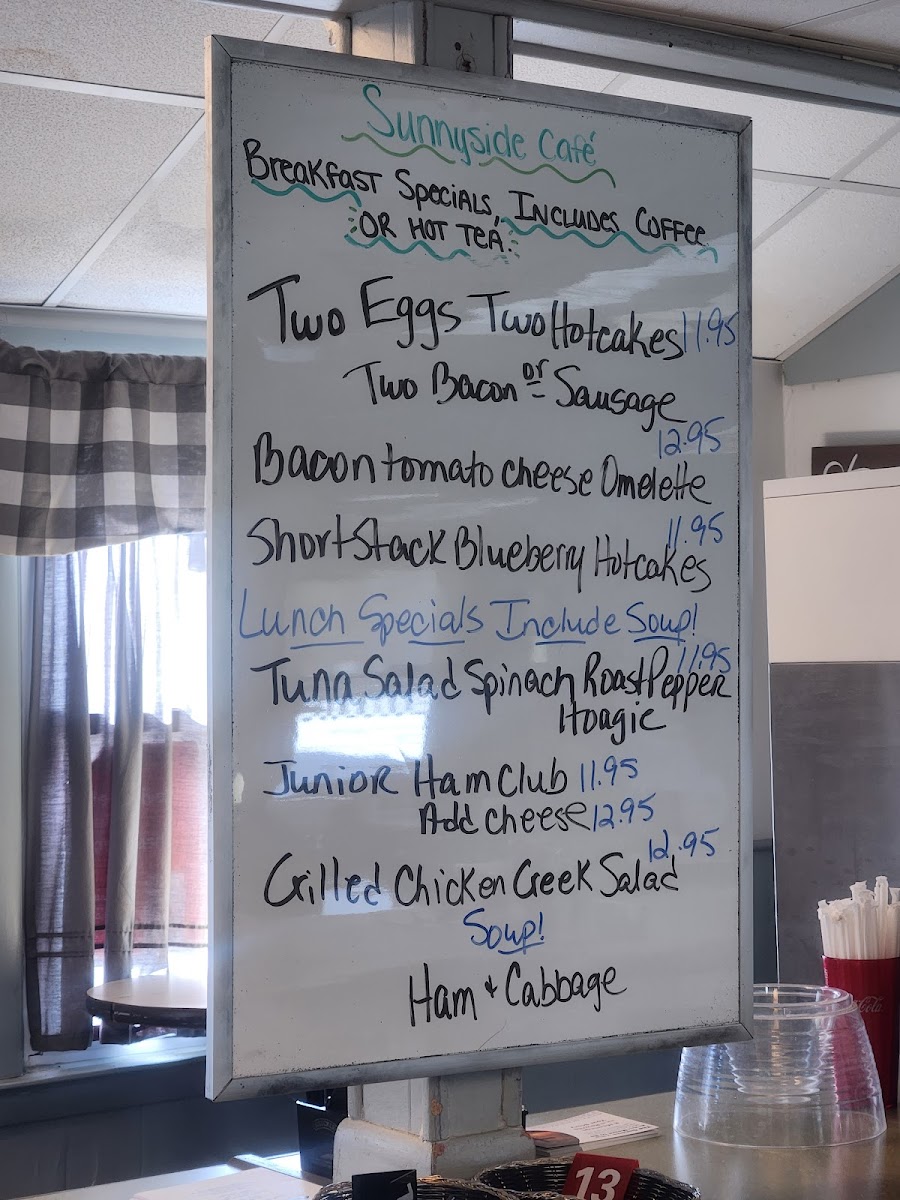 Sunnyside Café
Breakfast Specials, Includes Coffee
or Hot Tea.
Two Eggs Two Hotcakes 11.95
Two Bacon or Sausage
12.95
Bacon tomato cheese Omelette
11.95
Short Stack Blueberry Hotcakes
Lunch Specials Include Soup!
11.95
Tuna Salad Spinach Roast Pepper
Hoagie
Junior Ham Club 11.95
Add cheese 12.95
12.95
Grilled Chicken Greek Salad
Soup!
Ham + Cabbage
13